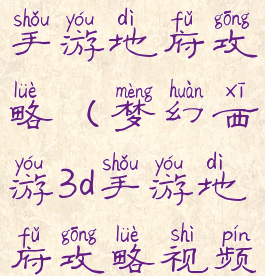 shǒu yóu dì fǔ gōng
手游地府攻
lüè mèng huàn xī
略（梦幻西
yóu shǒu yóu dì
游3d手游地
fǔ gōng lüè shì pín
府攻略视频